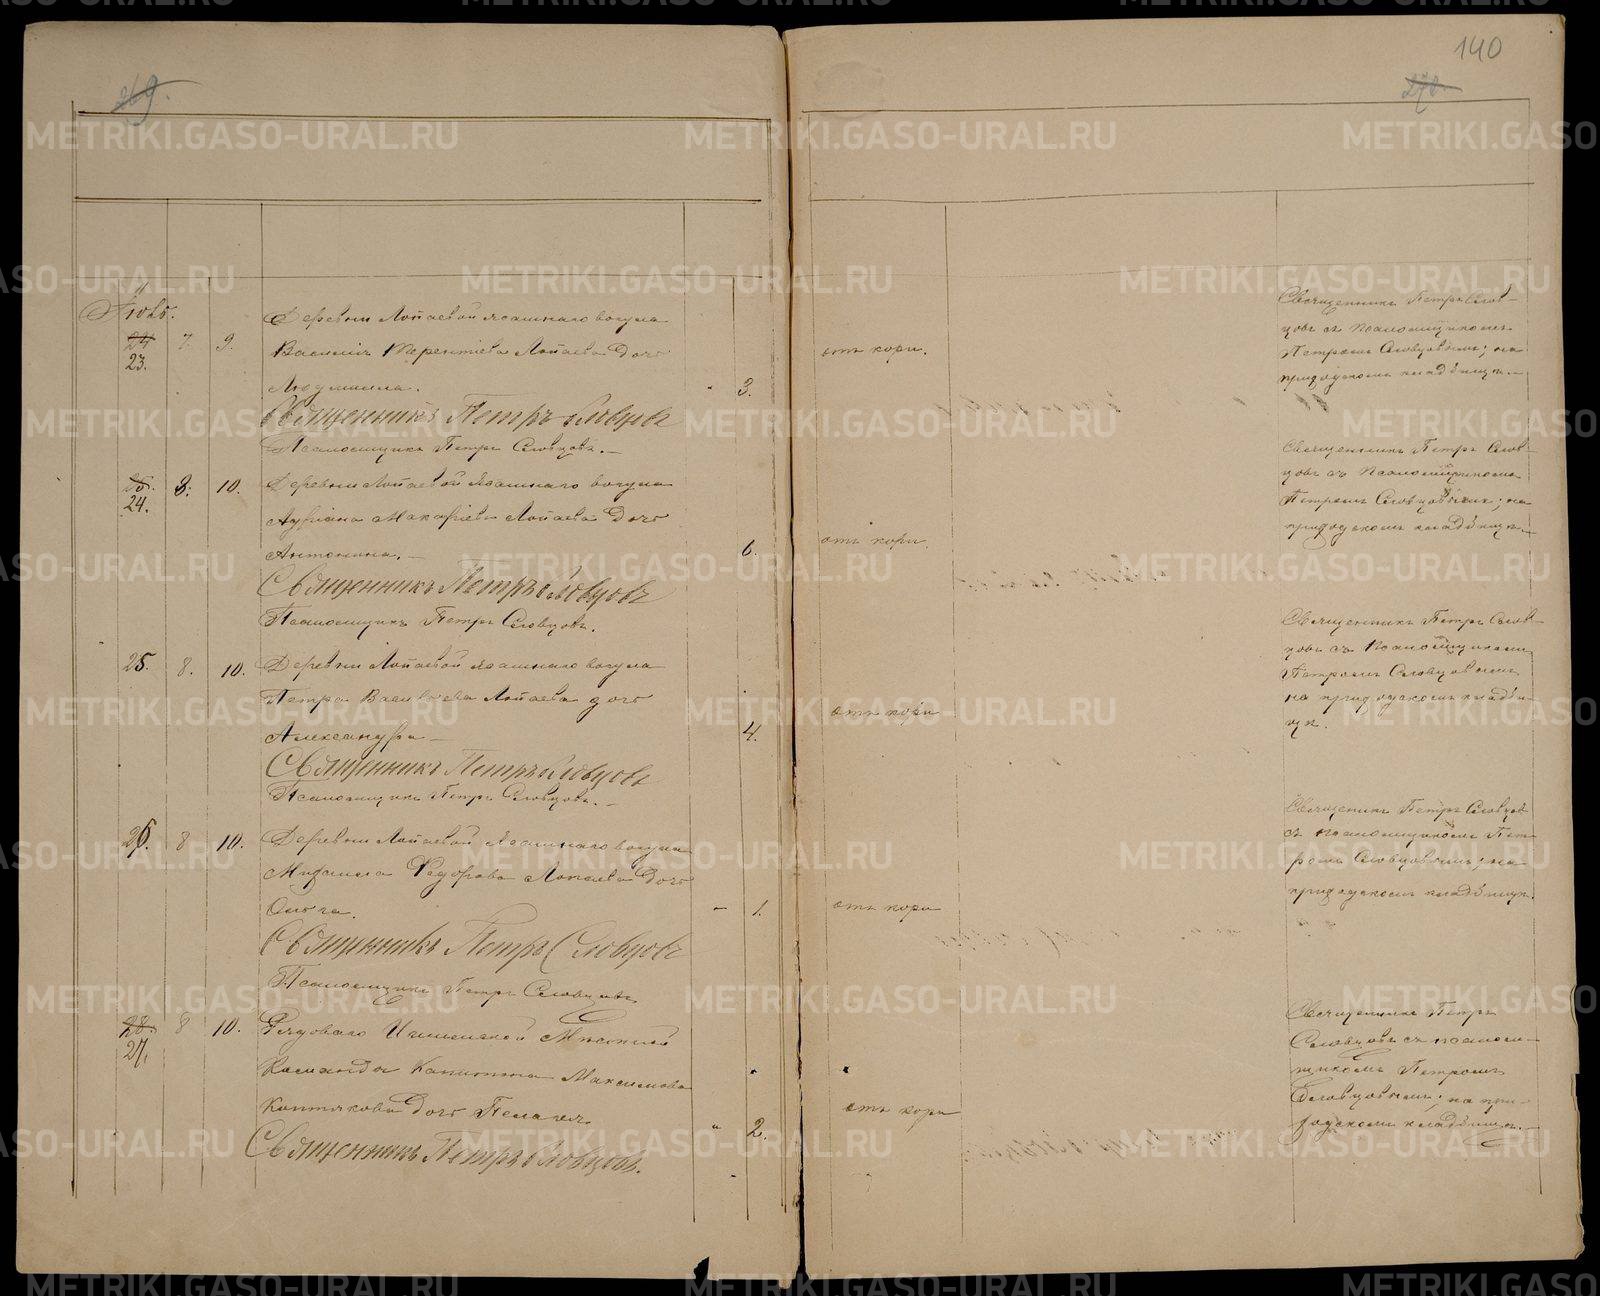 140
269.
270.
Деревни Лопаевой ясашнаго вогула
24
23.
7.
9.
Василія Терентіева Лопаева Дочь
Людмилла.
3.
отъ кори.
Священникъ Петръ Словцовъ
Псаломщикъ Петръ Словцовъ.
Священникъ Петръ Слов-
цовъ съ Псаломщикомъ
Петромъ Словцовымъ; на
приходскомъ кладбищѣ.
25.
24.
8.
10.
Деревни Лопаевой Ясашнаго вогула
Адріана Макаріева Лопаева Дочь
Антонина.
6.
отъ кори.
Священникъ Петръ Словцовъ
Псаломщикъ Петръ Словцовъ.
Священникъ Петръ Слов-
цовъ съ Псаломщикомъ
Петромъ Словцовымъ; на
приходскомъ кладбищѣ.
25.
8.
10.
Деревни Лопаевой ясашнаго вогула
Петра Васильева Лопаева дочь
Александра
4.
отъ кори
Священникъ Петръ Словцовъ
Псаломщикъ Петръ Словцовъ.
Священникъ Петръ Слов-
цовъ съ Псаломщикомъ
Петромъ Словцовымъ
на приходскомъ кладби-
щѣ.
26.
8
10.
Деревни Лопаевой Ясашнаго вогула
Михаила Федорова Лопаева Дочь
Ольга.
1.
отъ кори
Священникъ Петръ Словцовъ
Псаломщикъ Петръ Словцовъ
Священникъ Петръ Словцовъ
съ псаломщикомъ Пет-
ромъ Словцовымъ; на
приходскомъ кладбищѣ.
28.
27.
8
10.
Рядоваго Мѣстной
Команды Максимова
Дочь Пелагея
2.
отъ кори
Священникъ Петръ Словцовъ.
Священникъ Петръ
Словцовъ съ псалом-
щикомъ Петромъ
Словцовымъ; на при-
ходскомъ кладбищѣ.
METRIKI.GASO-URAL.RU